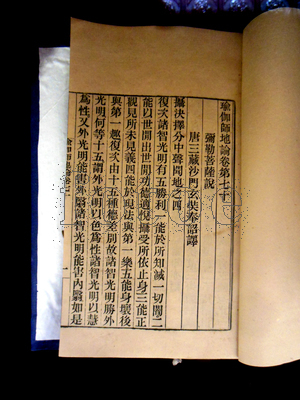 瑜伽師地論卷第七十
彌勒菩薩說
唐三藏沙門玄奘奉詔譯
攝決擇分中聲聞地之四
復次諸智光明有五勝利一能於所知滅一切闇二
能以世間出世間功德適悅攝受所依止身三能正
觀見所未見義四能於現法與第一樂五能身壞後
與第一趣復次由十五種德差別諸智光明勝外
光明何等十五謂外光明以色為性諸智光明以慧
為性又外光明能害外翳諸智光明能害內翳如是